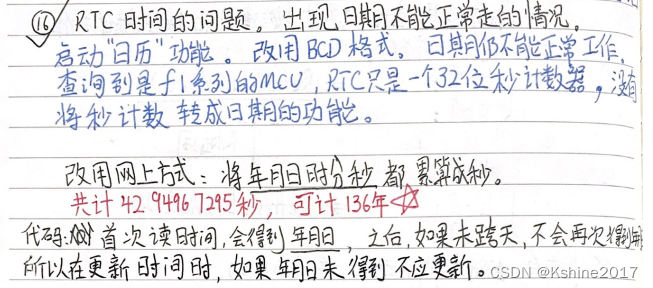 ⑯ RTC时间的问题。出现日期不能正常走的情况。
启动"日历"功能。改用BCD格式。日期仍不能正常工作。
查询到是f1系列的MCU，RTC只是一个32位秒计数器，没有
将秒计数 转成日期的功能。
改用网上方式：将年月日时分秒都累算成秒。
共计42 9496 7295秒，可计136年☆
代码: 首次读时间,会得到年月日，之后,如果未跨天,不会再次得到
所以在更新时间时,如果年月日未得到不应更新。
CSDN @Kshine2017